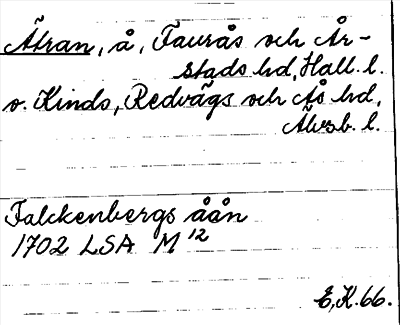 Ätran, å, Faurås och År-
stads hd, Hall. l.
o. Kinds, Redvägs och Ås hd,
Älvsb. l.
Falckenbergs åån
1702 LSA M 12
E.K.66.